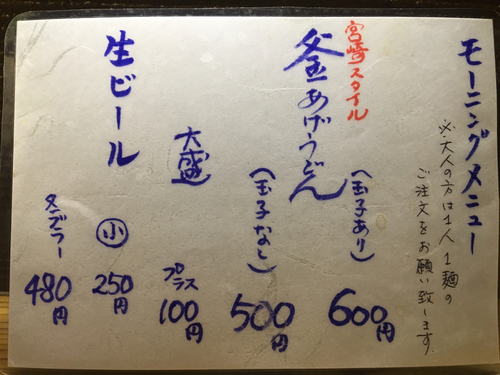 モーニングメニュー
※大人の方は1人1麺の
ご注文をお願い致します。
宮崎スタイル
釜あげうどん
(玉子あり) 600円
(玉子なし) 500円
大盛 プラス 100円
生ビール
小 250円
タンブラー 480円